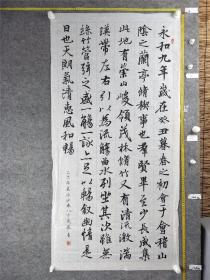 永和九年歲在癸丑暮春之初會于會稽山
陰之蘭亭脩禊事也羣賢畢至少長咸集
此地有崇山峻領茂林脩竹又有清流激湍
暎帶左右引以為流觴曲水列坐其次雖無
絲竹管弦之盛一觴一詠亦足以暢叙幽情是
日也天朗氣清惠風和暢